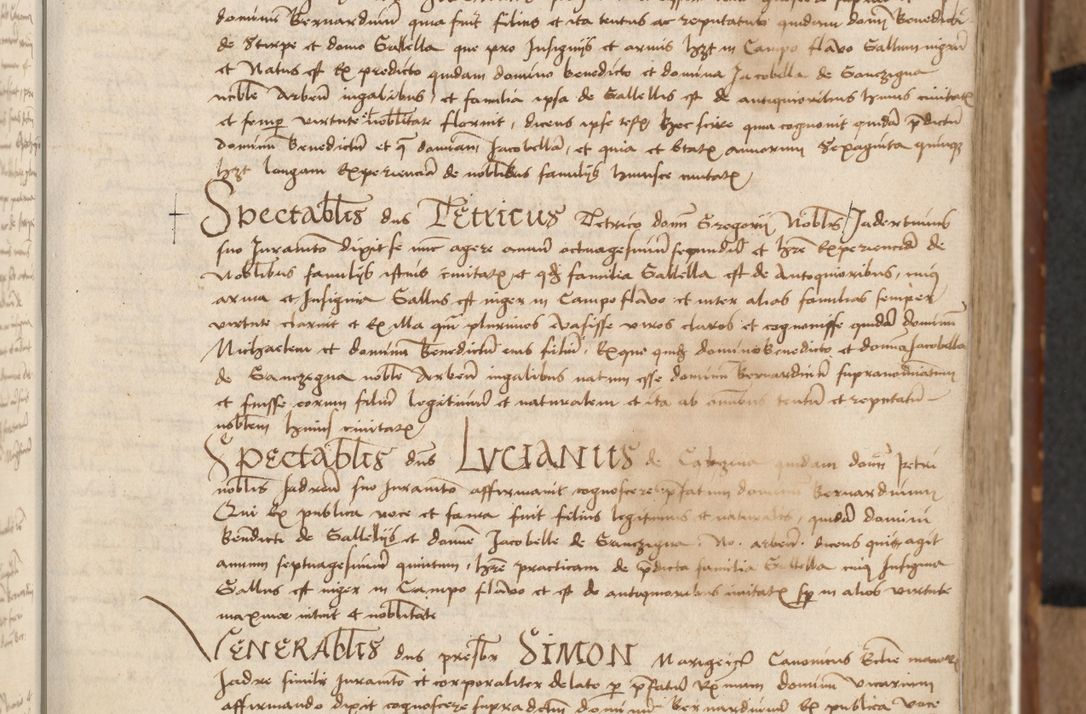 dominum Bernardinum quia fuit filius et ita tentus ac reputatus quondam domini Benedicti
de Stirpe et domo Gallella que pro Insignijs et armis hzt in Campo flavo Gallum nigrum
et Natus est Ex predicto quondam domino benedicto et domina Jacobella de Ganczigna
noble Arben iugalibus, et familia ipsa de Gallellis est de antiquioribus huius civitatis
et semper virtute noblitate floruit, dicens ipse testis hec scire quia cognovit quondam pdictum
dominum benedictum et q. domiam Jacobellam, et quia est etatis annorum Sexaginta quinque
hzt longam Experienciam de noblibus familijs huiusce civitatis
Spectablis dns Detricus Detrico domi Gregorij Noblis Jadertinus
suo Juramento dixit se nunc agere annum octuagesimum secundum et hre Experienciam de
Noblibus familijs istius civitatis et quod familia Gallella est de Antiquioribus, cuius
arma et Insignia Gallus est niger in Campo flavo et inter alias familias semper
virtute claruit et Ex illa qm plurimos Evasisse viros claros et cognovisse quondam dominum
Michaelem et dominum benedictum eius filium, Ex quo quidem domino benedicto et domina Jacobella
de Ganczigna noble Arben iugalibus natum esse dominum bernardinum supranominatum
et fuisse eorum filium legitimum et naturalem et ita ab omnibus tentum et reputatum
noblem huius civitatis
Spectablis dns LVCIANUS de quondam domini petri
noblis Jadren suo Juramento affirmavit cognoscere pfatum dominum bernardinum
Qui Ex publica voce et fama fuit filius legitimus et naturalis, quondam domini
benedicti de Gallellijs et domine Jacobelle de Ganczigna. No. arben. dicens quod agit
annum septuagesimum quintum, hre practicam de pdicta familia Gallella cuius Insignia
Gallus est niger in Campo flavo et est de antiquioribus civitatis semper in alios virtute
maxime nituit et noblitate
VENERABLIS dns presbr SIMON Canonicus Ecclie maioris
Jadre similis Juramento et corporaliter delato per pfatum dominum vicarium
affirmando dixit cognoscere supradictum dominum bernardinum Ex publica voce